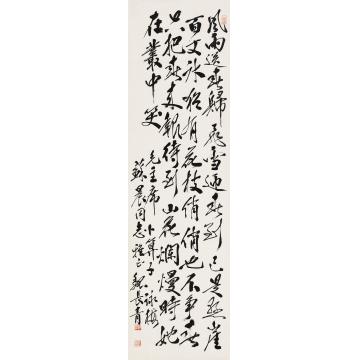 風雨送春歸飛雪迎春到已是懸崖
百丈冰猶有花枝俏俏也不爭春
只把春來報待到山花爛熳時她
在叢中笑
毛主席卜算子詠梅
蘇晨同志雅正魏長青